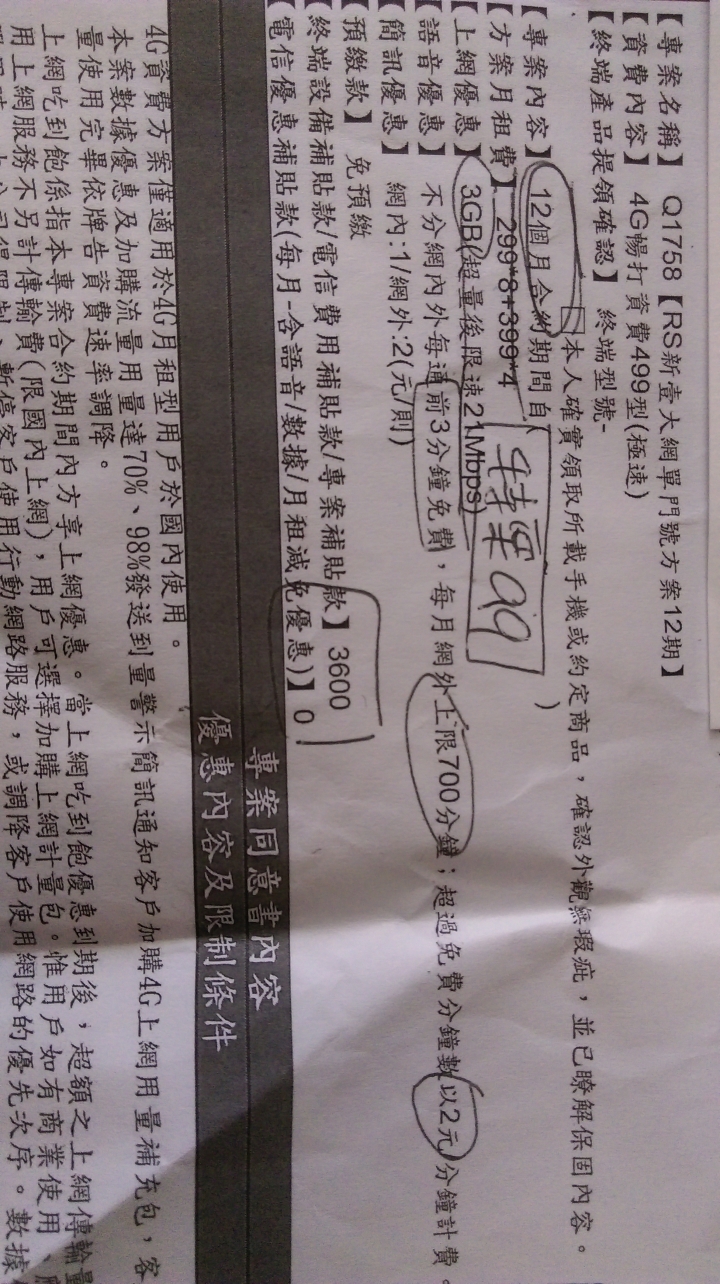 【專案名稱】 Q1758【RS新壹大網單門號方案12期】
【資費內容】 4G暢打資費499型(極速)
【終端產品提領確認】 終端型號-
□本人確實領取所載手機或約定商品，確認外觀無瑕疵，並已瞭解保固內容。
【專案內容】 12個月合約期間自( )
【方案月租費】 299*8+399*4
特準99
【上網優惠】 3GB(超量後限速21Mbps)
【語音優惠】 不分網內外每通前3分鐘免費，每月網外上限700分鐘；超過免費分鐘數以2元/分鐘計費。
【簡訊優惠】 網內:1/網外:2(元/則)
【預繳款】 免預繳
【終端設備補貼款/電信費用補貼款/專案補貼款】 3600
【電信優惠補貼款(每月-含語音/數據/月租減免優惠)】 0
專案同意書內容
優惠內容及限制條件
4G資費方案僅適用於4G月租型用戶於國內使用。
本案數據優惠及加購流量用量達70%、98%發送到量警示簡訊通知客戶加購4G上網用量補充包，客
量使用完畢依牌告資費速率調降。
上網吃到飽係指本專案合約期間內方享上網優惠。當上網吃到飽優惠到期後，超額之上網傳輸量
用上網服務不另計傳輸費(限國內上網)，用戶可選擇加購上網計量包。惟用戶如有商業使用、
暫停客戶使用行動網路服務，或調降客戶使用網路的優先次序。數據